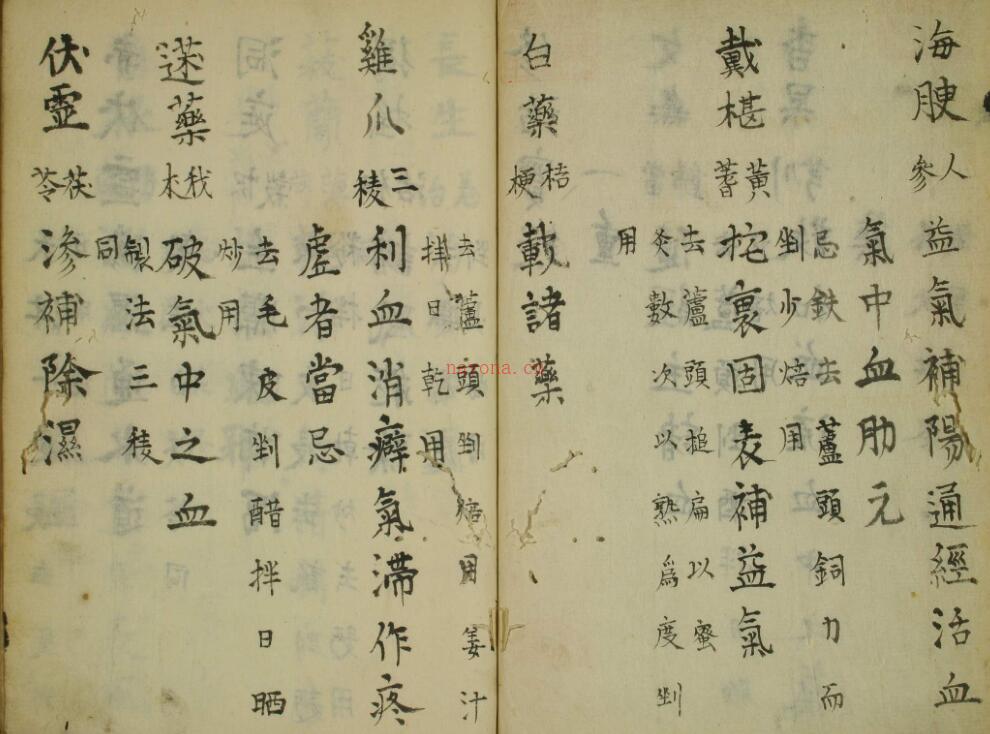 海腴 人參 益氣補陽通經活血
氣中血肋元
忌鉄去蘆頭銅力而
剉少焙用
戴椹 黃蓍 托裏固表補益氣
去蘆頭搥扁以蜜
炙數次以熟爲度剉
用
白藥 桔梗 載諸藥
去蘆頭剉焙用姜汁
拌日乾用
雞爪 三稜 利血消癖氣滯作疼
虛者當忌
去毛皮剉醋拌日晒
炒用
蒁藥 我朮 破氣中之血
製法三稜
同
伏靈 茯苓 滲補除濕